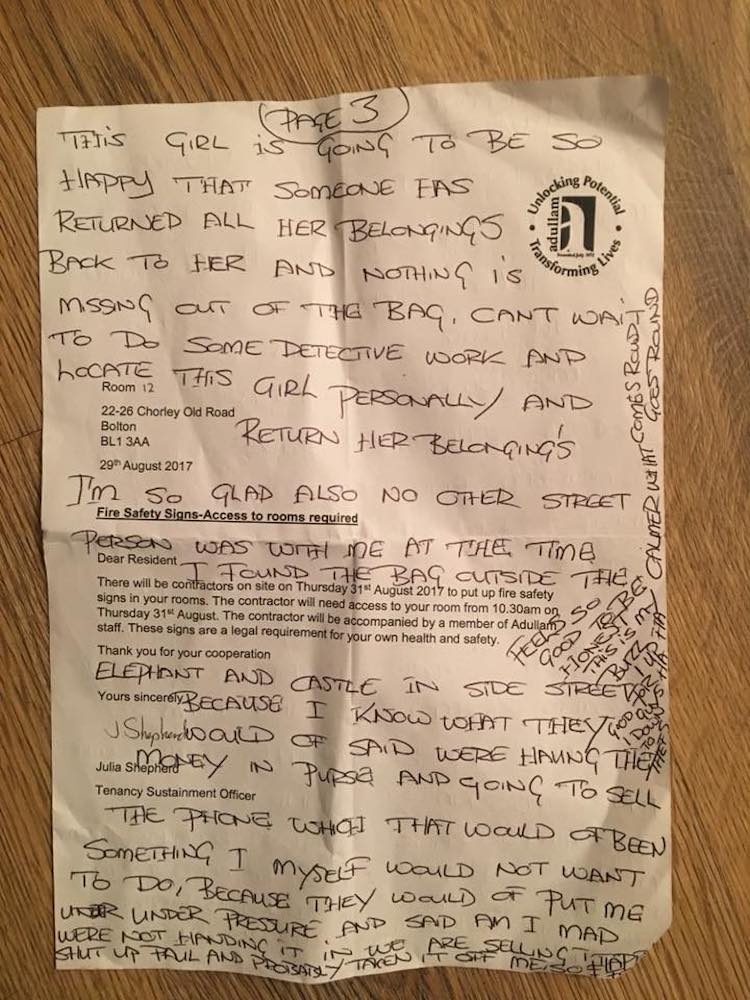 PAGE 3
THIS GIRL IS GOING TO BE SO
HAPPY THAT SOMEONE HAS
Unlocking Potential
adullam
Founded July 1972
Transforming Lives
RETURNED ALL HER BELONGINGS
BACK TO HER AND NOTHING IS
MISSING OUT OF THE BAG, CANT WAIT
TO DO SOME DETECTIVE WORK AND
LOCATE THIS GIRL PERSONALLY AND
Room 12
22-26 Chorley Old Road
Bolton
RETURN HER BELONGING'S
BL1 3AA
29th August 2017
I'M SO GLAD ALSO NO OTHER STREET
Fire Safety Signs-Access to rooms required
PERSON WAS WITH ME AT THE TIME
Dear Resident
I FOUND THE BAG OUTSIDE THE
There will be contractors on site on Thursday 31st August 2017 to put up fire safety
signs in your rooms. The contractor will need access to your room from 10.30am on
Thursday 31st August. The contractor will be accompanied by a member of Adullam
staff. These signs are a legal requirement for your own health and safety.
Thank you for your cooperation
ELEPHANT AND CASTLE IN SIDE STREET
Yours sincerely
BECAUSE I KNOW WHAT THEY
J Shepherd
WOULD OF SAID WERE HAVING THE
MONEY IN PURSE AND GOING TO SELL
Julia Shepherd
Tenancy Sustainment Officer
THE PHONE WHICH THAT WOULD OF BEEN
SOMETHING I MYSELF WOULD NOT WANT
TO DO, BECAUSE THEY WOULD OF PUT ME
UNDER UNDER PRESSURE AND SAID AM I MAD
WERE NOT HANDING IT IN WE ARE SELLING IT
SHUT UP PAUL AND PROBABLY TAKEN IT OFF ME, SO
FEELS SO
GOOD TO BE
HONEST
THIS IS MY
BUZZ
1 UP
FOR
GOOD GUYS
1 DOWN
TO
THIEFS
CALMER WHAT COMES ROUND
GOES ROUND